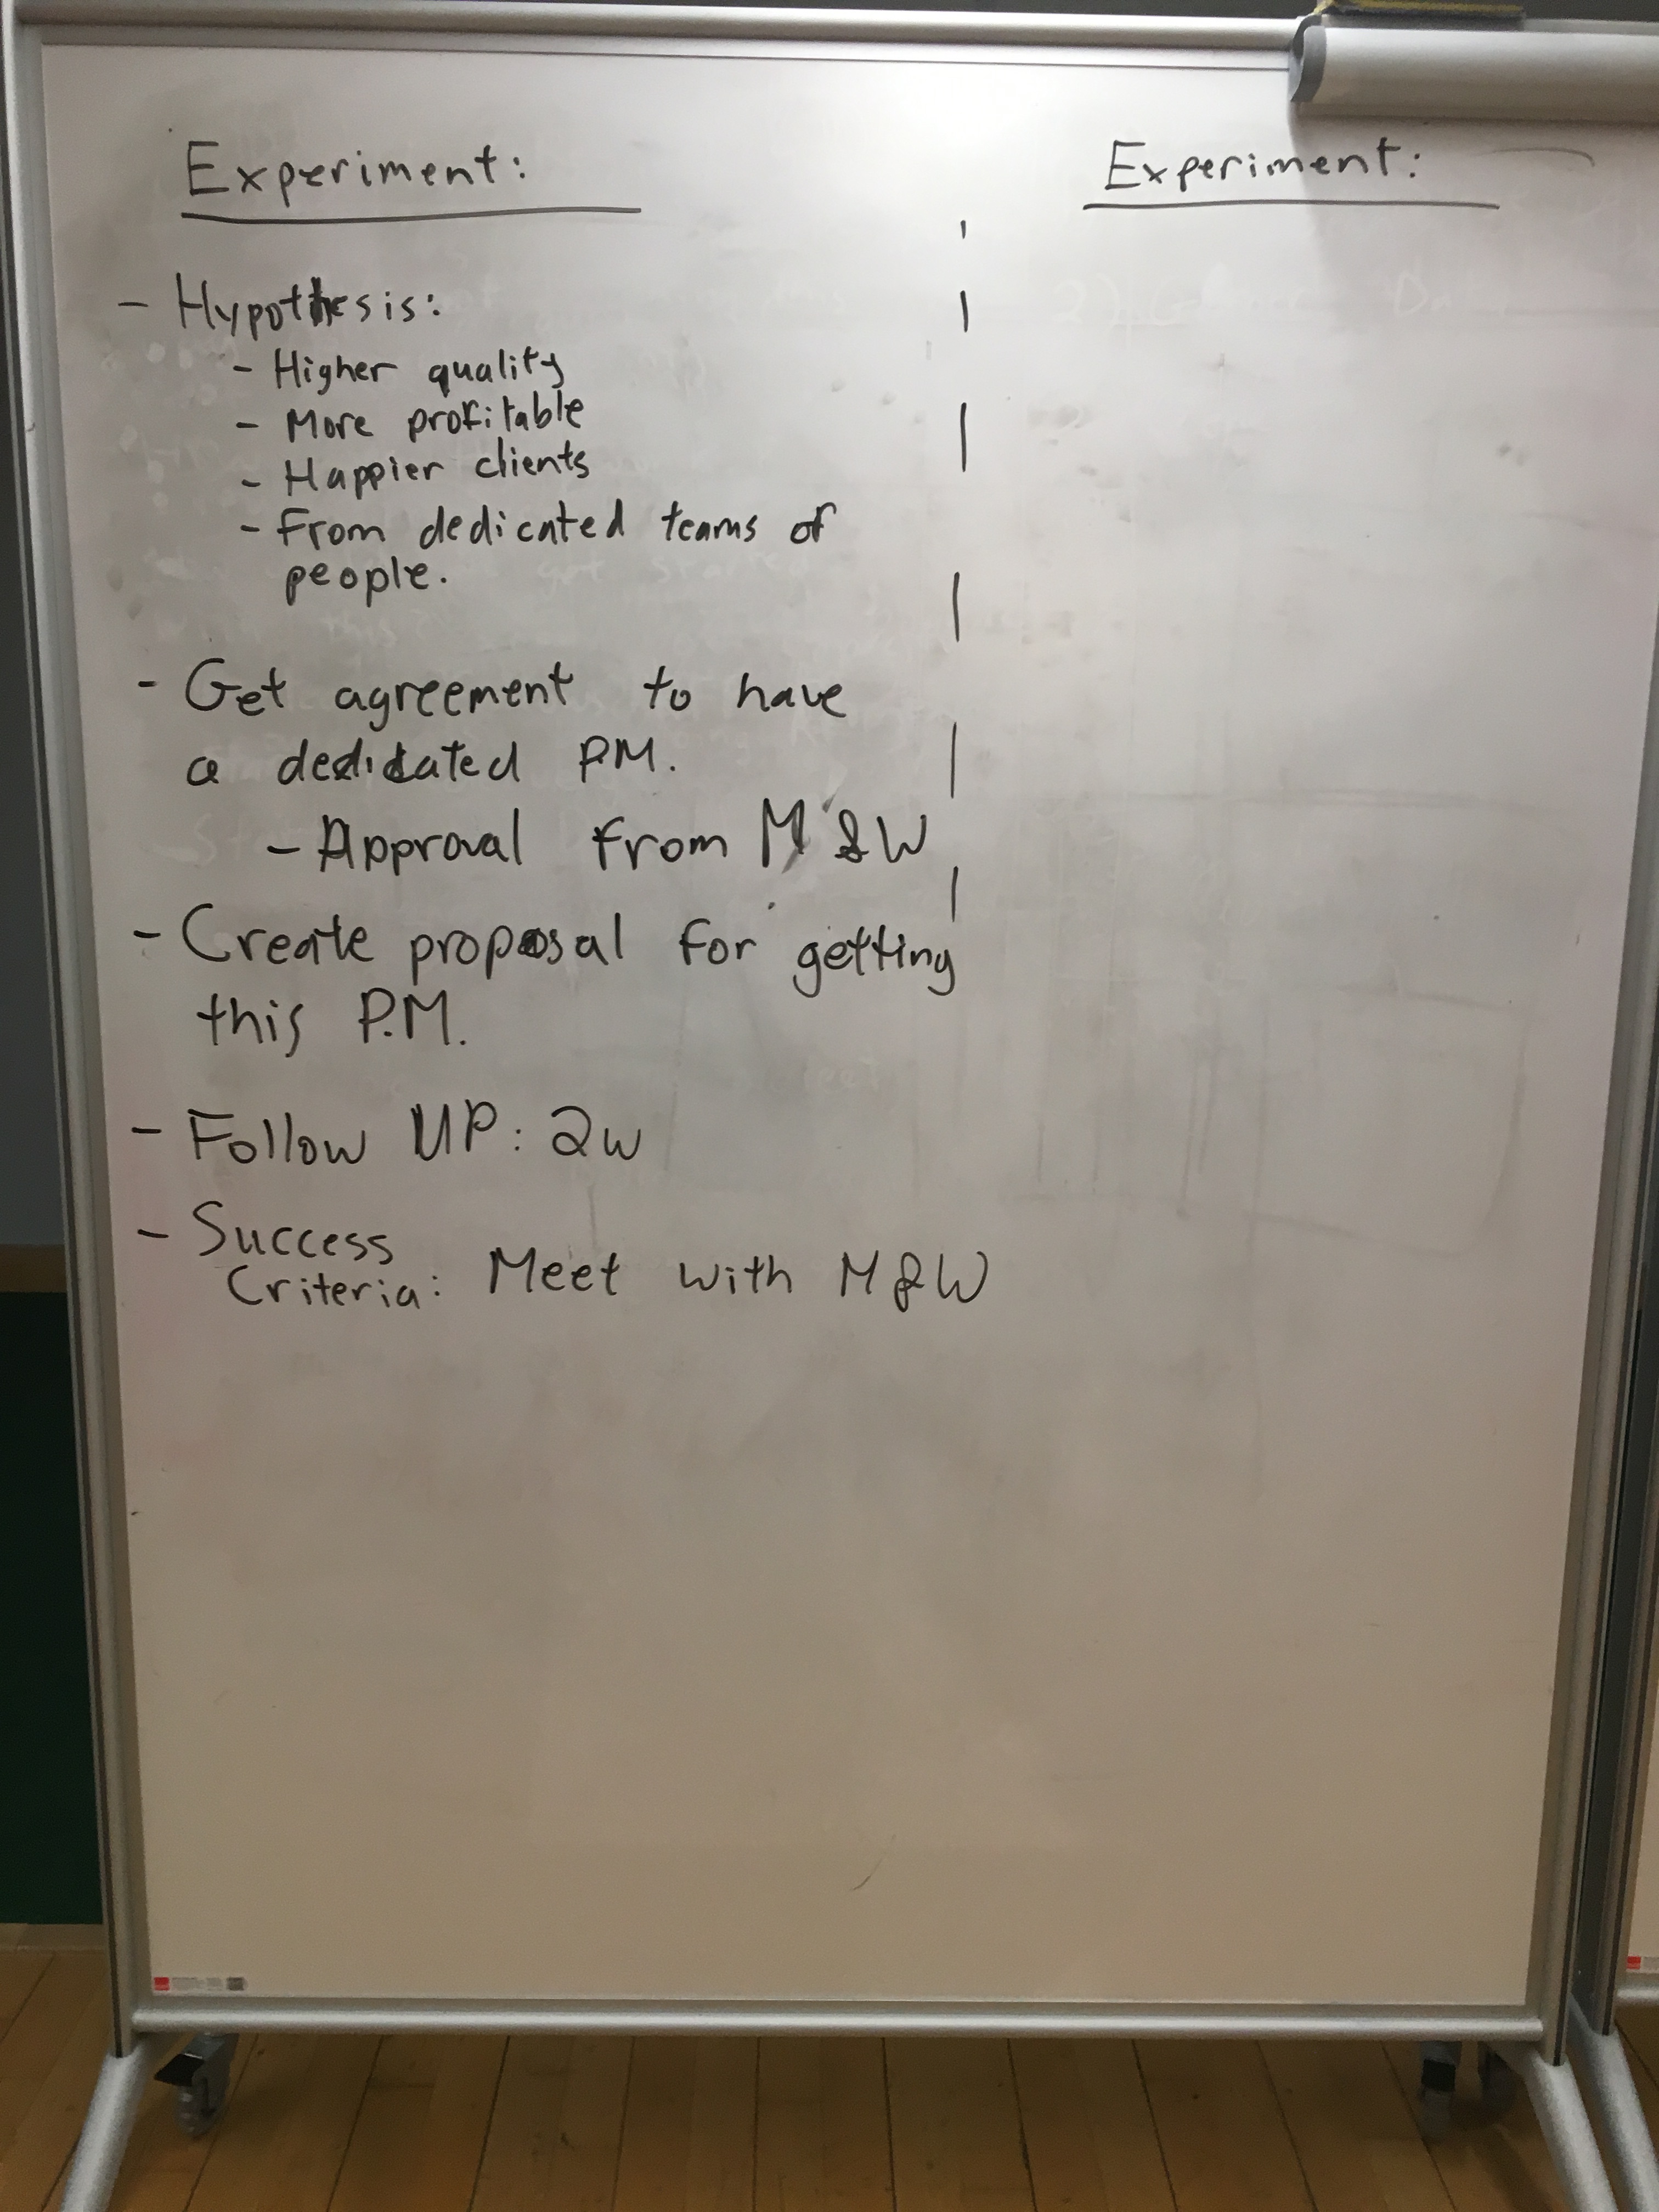 Experiment:
- Hypothesis:
- Higher quality
- More profitable
- Happier clients
- From dedicated teams of
people.
- Get agreement to have
a dedicated PM.
- Approval from M & W
- Create proposal for getting
this P.M.
- Follow UP: 2w
- Success
Criteria: Meet with M & W
Experiment: